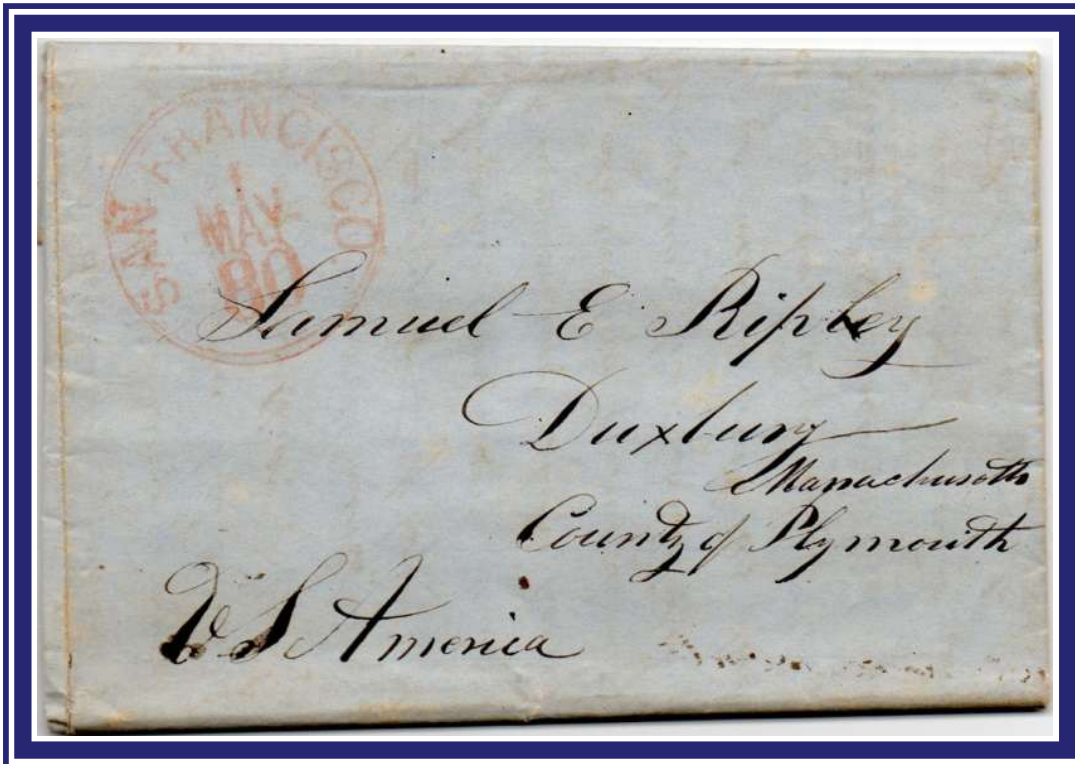 SAN FRANCISCO
1
MAY
80
Samuel E Ripley
Duxbury
Massachusetts
County of Plymouth
U S America